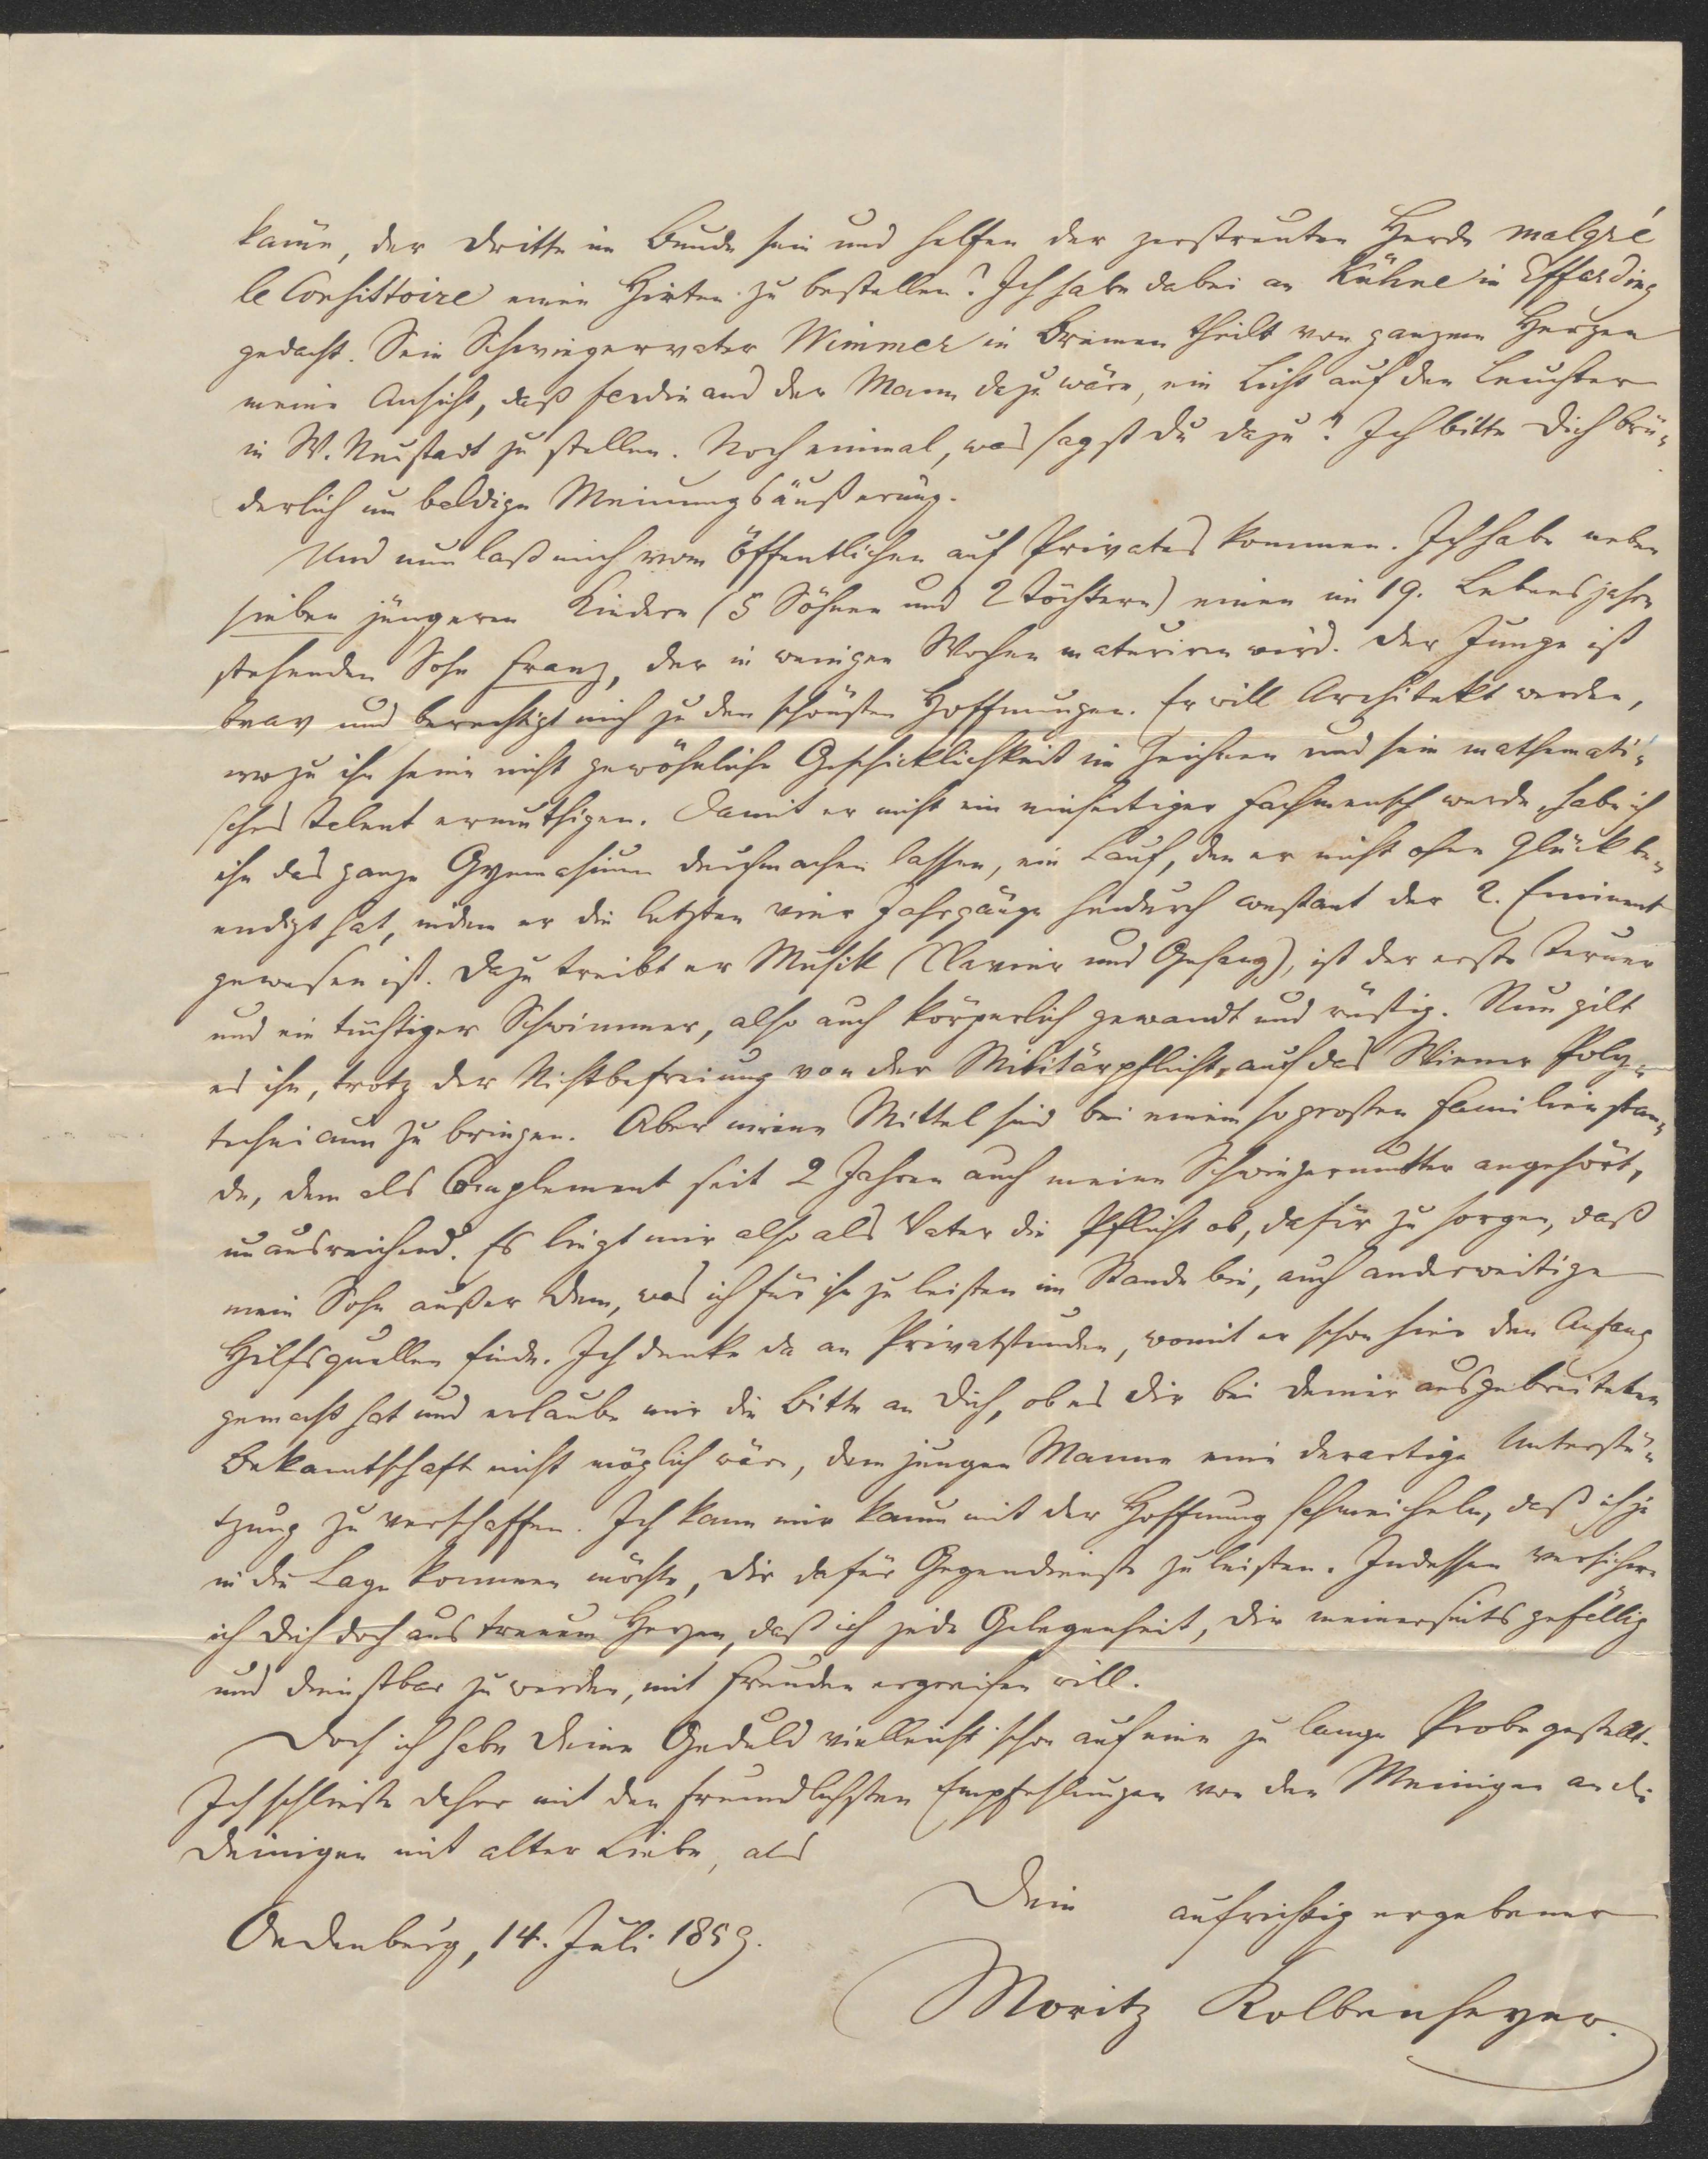 kann, der Dritte im Bunde sein und helfen der zerstreuten Herde malgré
le Consistoire einen Hirten zu bestellen? Ich habe dabei an Kühne in Efferding
gedacht. Sein Schwiegervater Wimmer in Bremen theilt von ganzem Herzen
meine Ansicht, daß Ferdinand der Mann dazu wäre, ein Licht auf den Leuchter
in W. Neustadt zu stellen. Noch einmal, was sagst du dazu? Ich bitte Dich brü-
derlich um baldige Meinungsäußerung.
Und nun laß mich vom Öffentlichen auf Privates kommen. Ich habe neben
sieben jüngeren Kindern (5 Söhnen und 2 Töchtern) einen im 19. Lebensjahre
stehenden Sohn Franz, der in wenigen Wochen maturiren wird. Der Junge ist
brav und berechtigt mich zu den schönsten Hoffnungen. Er will Architekt werden,
wozu ihn seine nicht gewöhnliche Geschicklichkeit im Zeichnen und sein mathemati-
sches Talent ermuthigen. Damit er nicht ein einseitiger Fachmensch werde, habe ich
ihn das ganze Gymnasium durchmachen lassen, ein Lauf, den er nicht ohne Glück be-
endigt hat, indem er die letzten vier Jahrgänge hindurch constant der 2. Eminent
gewesen ist. Dazu treibt er Musik (Klavier und Gesang), ist der erste Turner
und ein tüchtiger Schwimmer, also auch körperlich gewandt und rüstig. Nun gilt
es ihn, trotz der Nichtbefreiung von der Militärpflicht, auf das Wiener Poly-
technicum zu bringen. Aber meine Mittel sind bei einem so großen Familienstan-
de, dem als Complement seit 2 Jahren auch meine Schwiegermutter angehört,
unausreichend. Es liegt mir also als Vater die Pflicht ob, dafür zu sorgen, daß
mein Sohn außer dem, was ich für ihn zu leisten im Stande bin, auch anderweitige
Hilfsquellen finde. Ich denke da an Privatstunden, womit er schon hier den Anfang
gemacht hat und erlaube mir die Bitte an Dich, ob es Dir bei Deiner ausgebreiteten
Bekanntschaft nicht möglich wäre, dem jungen Manne eine derartige Unterstü-
tzung zu verschaffen. Ich kann mir kaum mit der Hoffnung schmeicheln, daß ich je
in die Lage kommen möchte, Dir dafür Gegendienste zu leisten. Indessen versichere
ich Dich doch aus treuem Herzen, daß ich jede Gelegenheit, Dir meinerseits gefällig
und dienstbar zu werden, mit Freuden ergreifen will.
Doch ich habe Deine Geduld vielleicht schon auf eine zu lange Probe gestellt.
Ich schließe daher mit den freundlichsten Empfehlungen von den Meinigen an die
Deinigen mit alter Liebe, als
Dein aufrichtig ergebener
Oedenburg, 14. Juli 1859.
Moritz Kolbenheyer.